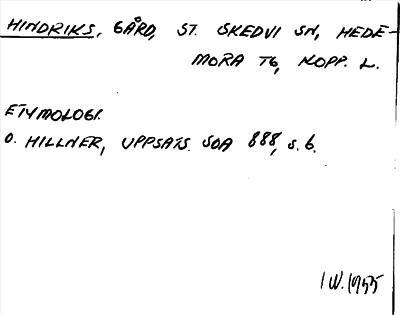 HINDRIKS, GÅRD, ST. SKEDVI SN, HEDE-
MORA TG, KOPP. L.
ETYMOLOGI.
O. HILLNER, UPPSATS SOA 888, s. 6.
I W. 1955